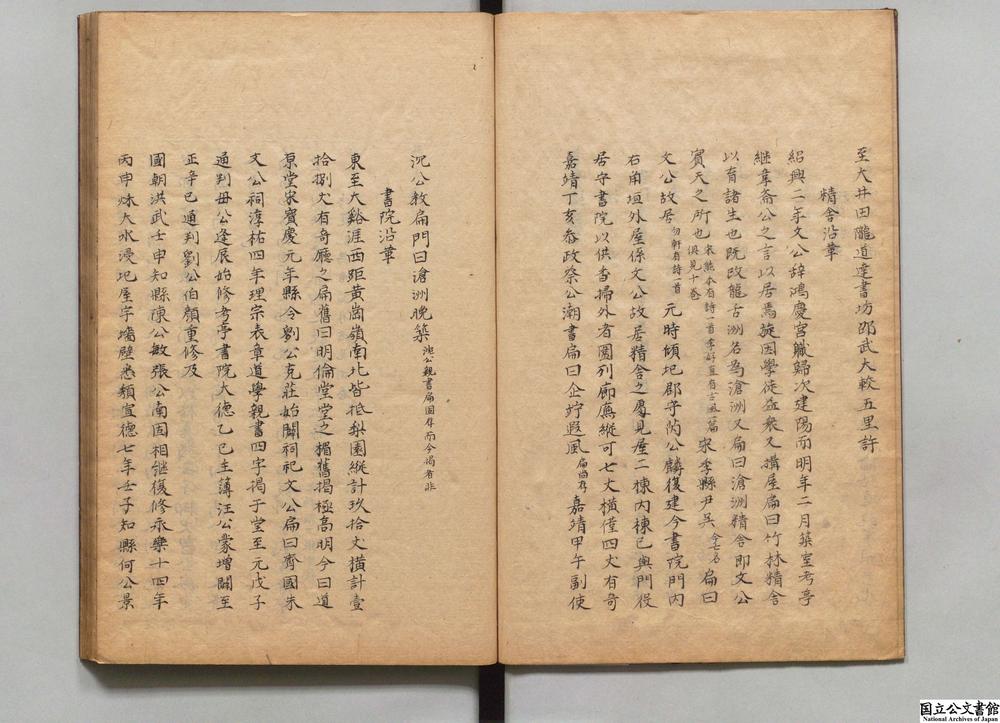 至大井田隴道達書坊邵武大較五里許
精舍沿革
紹興二年文公辭鴻慶宮職歸次建陽而明年二月築室考亭
継韋斋公之言以居焉旋因學徒益衆又搆屋扁曰竹林精舍
以育諸生也既改龍舌洲名為滄洲又扁曰滄洲精舍即文公
賓天之所也宋熊本有詩一首李好且有古風一篇俱見十巻宋季縣尹吳今亡名扁曰
文公故居勿軒有詩一首元時傾圮郡守苪公麟復建今書院門內
右角垣外屋係文公故居精舍之處見屋二棟內棟已與門役
居守書院以供香掃外者園列廊廡縱可七丈橫僅四丈有奇
嘉靖丁亥叅政蔡公潮書扁曰企竚遐風扁尚存嘉靖甲午副使
沉公教扁門曰滄洲晚築沈公親書扁固存而今揭者非
書院沿革
東至大谿涯西距黃崗嶺南北皆抵梨園縱計玖拾丈橫計壹
拾捌丈有奇廳之扁舊曰明倫堂堂之楣舊揭極高明今曰道
原堂宋寶慶元年縣令劉公克莊始闢祠祀文公扁曰齊國朱
文公祠淳祐四年理宗表章道學親書四字揭于堂至元戊子
通判毋公逢辰始修考亭書院大德乙巳主薄汪公蒙增闢至
正辛巳通判劉公伯顏重修及
國朝洪武壬申知縣陳公敏張公南因相継復修永樂十四年
丙申秋大水浸圮屋宇墻壁悉頽宣德七年壬子知縣何公景
国立公文書館
National Archives of Japan